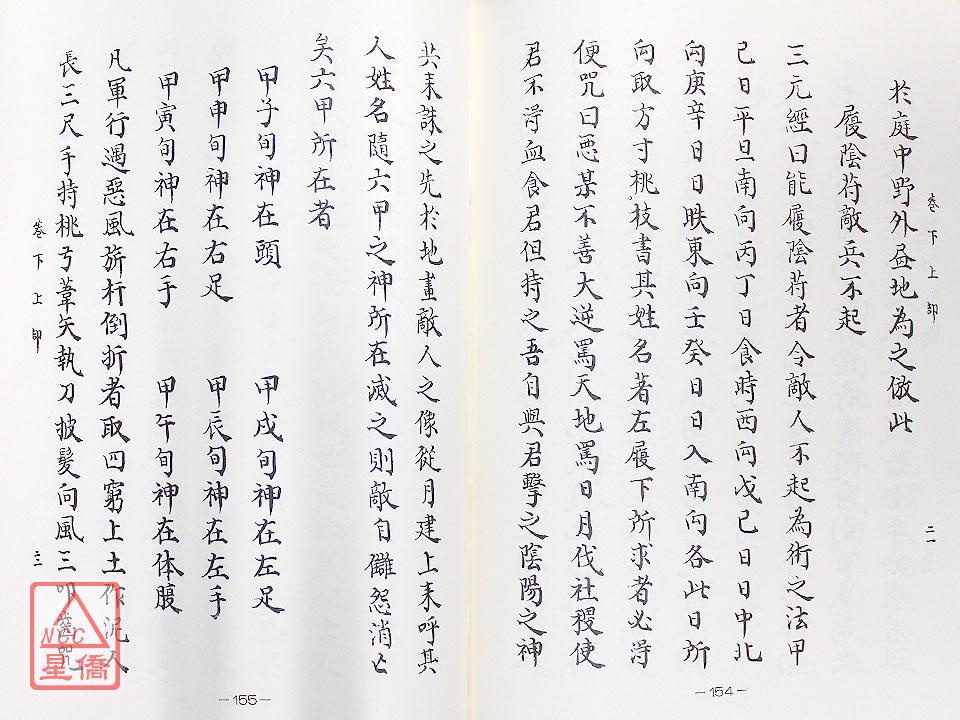 卷下上部
二一
於庭中野外益地為之倣此
履陰符敵兵不起
三元經曰能履陰符者令敵人不起為術之法甲
己日平旦南向丙丁日食時西向戊己日日中北
向庚辛日日昳東向壬癸日日入南向各此日所
向取方寸桃枝書其姓名著左履下所求者必淂
便咒曰悪某不善大逆罵天地罵日月伐社稷使
君不淂血食君但持之吾自與君擊之陰陽之神
－154－
共来誅之先於地畫敵人之像從月建上来呼其
人姓名隨六甲之神所在滅之則敵自讎怨消亡
矣六甲所在者
甲子旬神在頭　甲戌旬神在左足
甲申旬神在右足　甲辰旬神在左手
甲寅旬神在右手　甲午旬神在体腹
凡軍行遇惡風旂杆倒折者取四窮上土作泥人
長三尺手持桃弓葦矢執刀披髮向風三叩齒咒
卷下上部
－155－
NCC
星僑